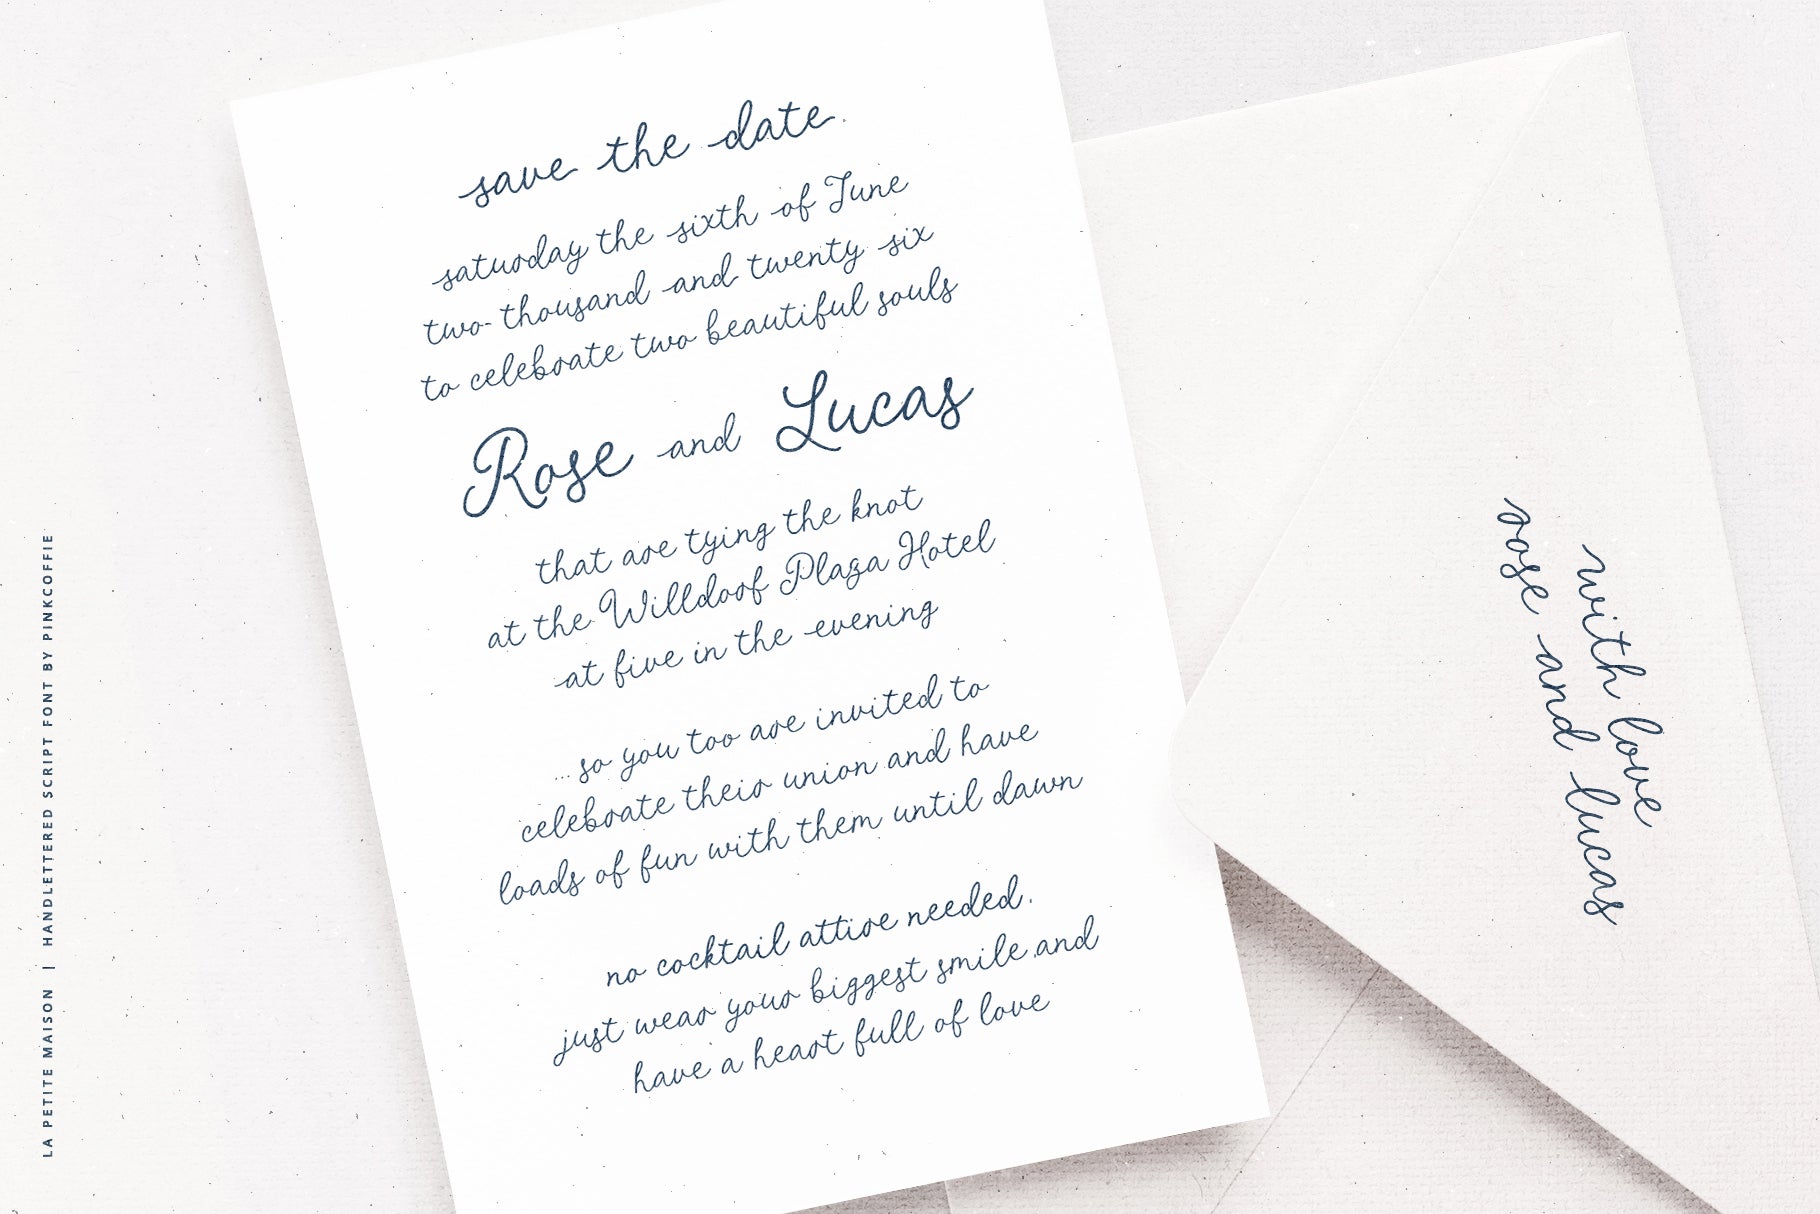 save the date
saturday the sixth of June
two-thousand and twenty six
to celebrate two beautiful souls
Rose and Lucas
that are tying the knot
at the Willdorf Plaza Hotel
at five in the evening
...so you too are invited to
celebrate their union and have
loads of fun with them until dawn
no cocktail attire needed.
just wear your biggest smile and
have a heart full of love
with love
rose and lucas
LA PETITE MAISON | HANDLETTERED SCRIPT FONT BY PINKCOFFIE